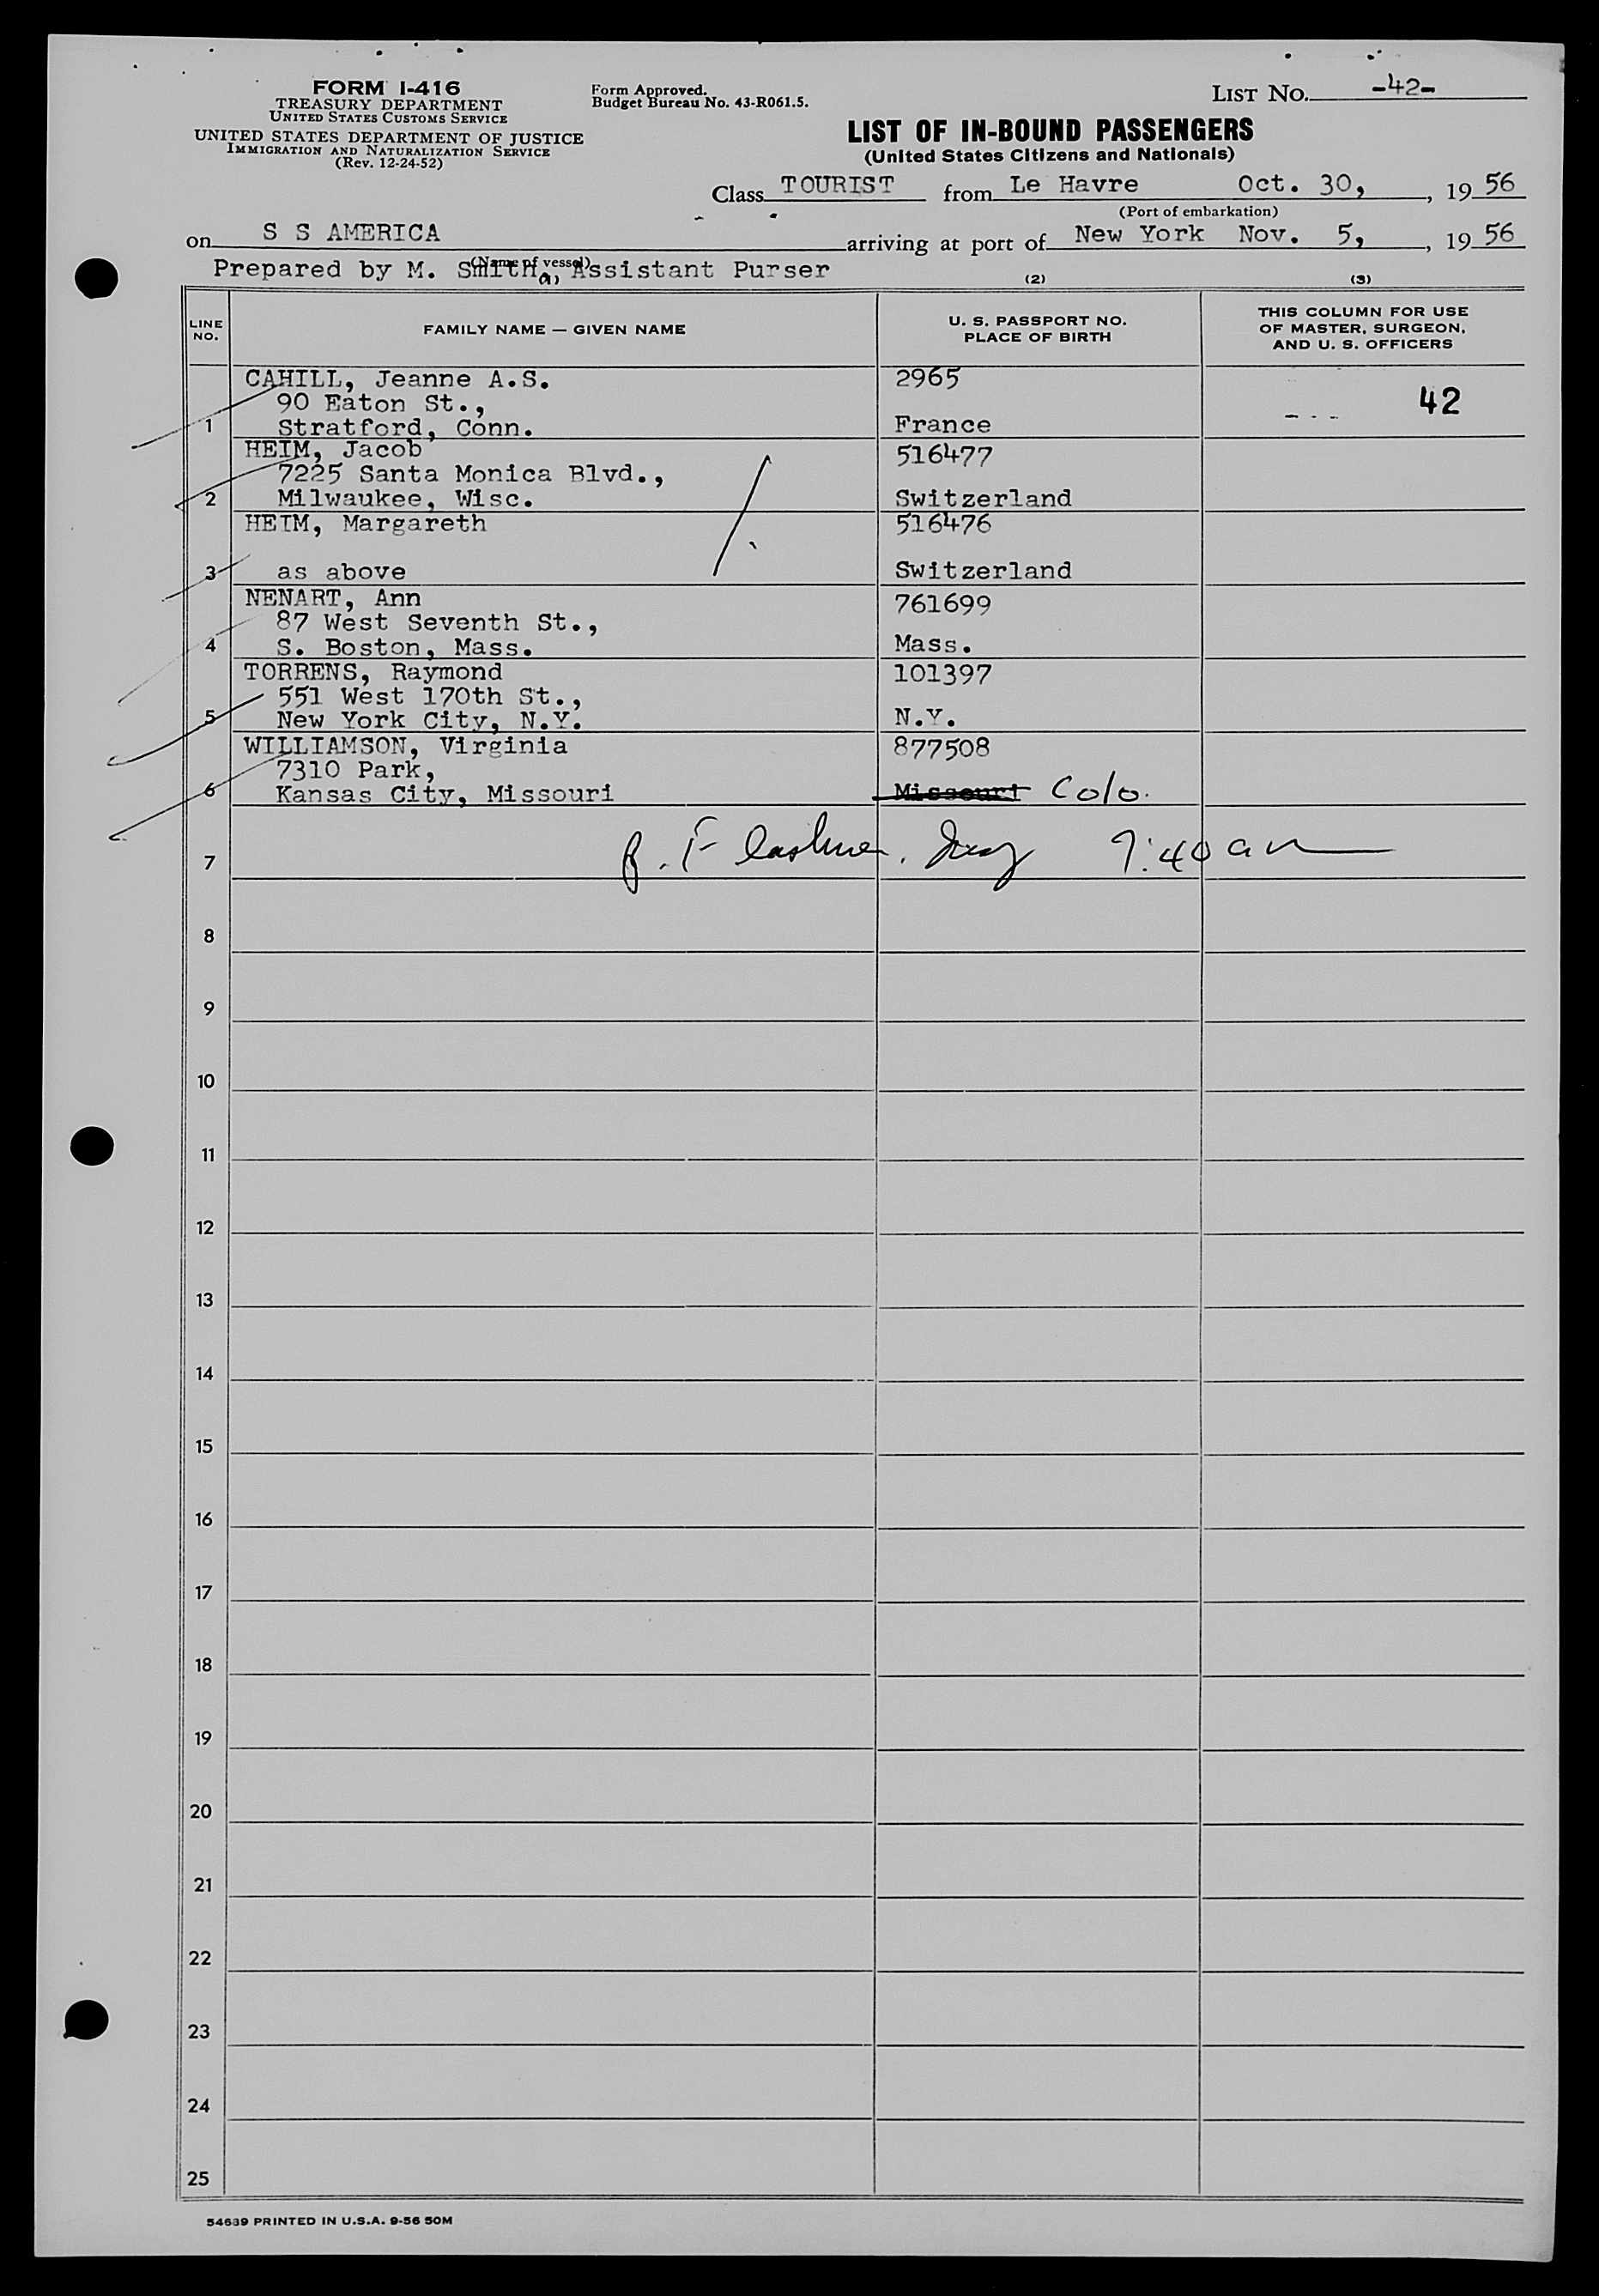 FORM I-416
TREASURY DEPARTMENT
UNITED STATES CUSTOMS SERVICE
UNITED STATES DEPARTMENT OF JUSTICE
IMMIGRATION AND NATURALIZATION SERVICE
(Rev. 12-24-52)
Form Approved.
Budget Bureau No. 43-R061.5.
LIST NO. -42-
LIST OF IN-BOUND PASSENGERS
(United States Citizens and Nationals)
Class TOURIST from Le Havre Oct. 30, , 19 56
(Port of embarkation)
on S S AMERICA arriving at port of New York Nov. 5, , 19 56
(Name of vessel)
Prepared by M. SMITH, Assistant Purser
(1) (2) (3)
LINE NO. FAMILY NAME — GIVEN NAME U. S. PASSPORT NO. PLACE OF BIRTH THIS COLUMN FOR USE OF MASTER, SURGEON, AND U. S. OFFICERS
CAHILL, Jeanne A.S. 2965
90 Eaton St., 42
1 Stratford, Conn. France
HEIM, Jacob 516477
7225 Santa Monica Blvd.,
2 Milwaukee, Wisc. Switzerland
HEIM, Margareth 516476
3 as above Switzerland
NENART, Ann 761699
87 West Seventh St.,
4 S. Boston, Mass. Mass.
TORRENS, Raymond 101397
551 West 170th St.,
5 New York City, N.Y. N.Y.
WILLIAMSON, Virginia 877508
7310 Park,
6 Kansas City, Missouri Missouri Colo.
7 9:40 am
8
9
10
11
12
13
14
15
16
17
18
19
20
21
22
23
24
25
54639 PRINTED IN U.S.A. 9-56 50M